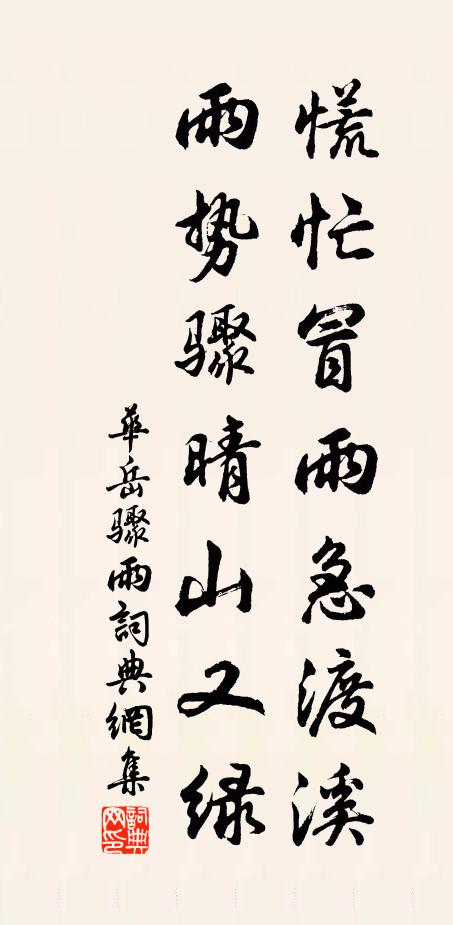 慌忙冒雨急渡溪
雨势骤晴山又绿
華岳骤雨詞典網集
詞典网印